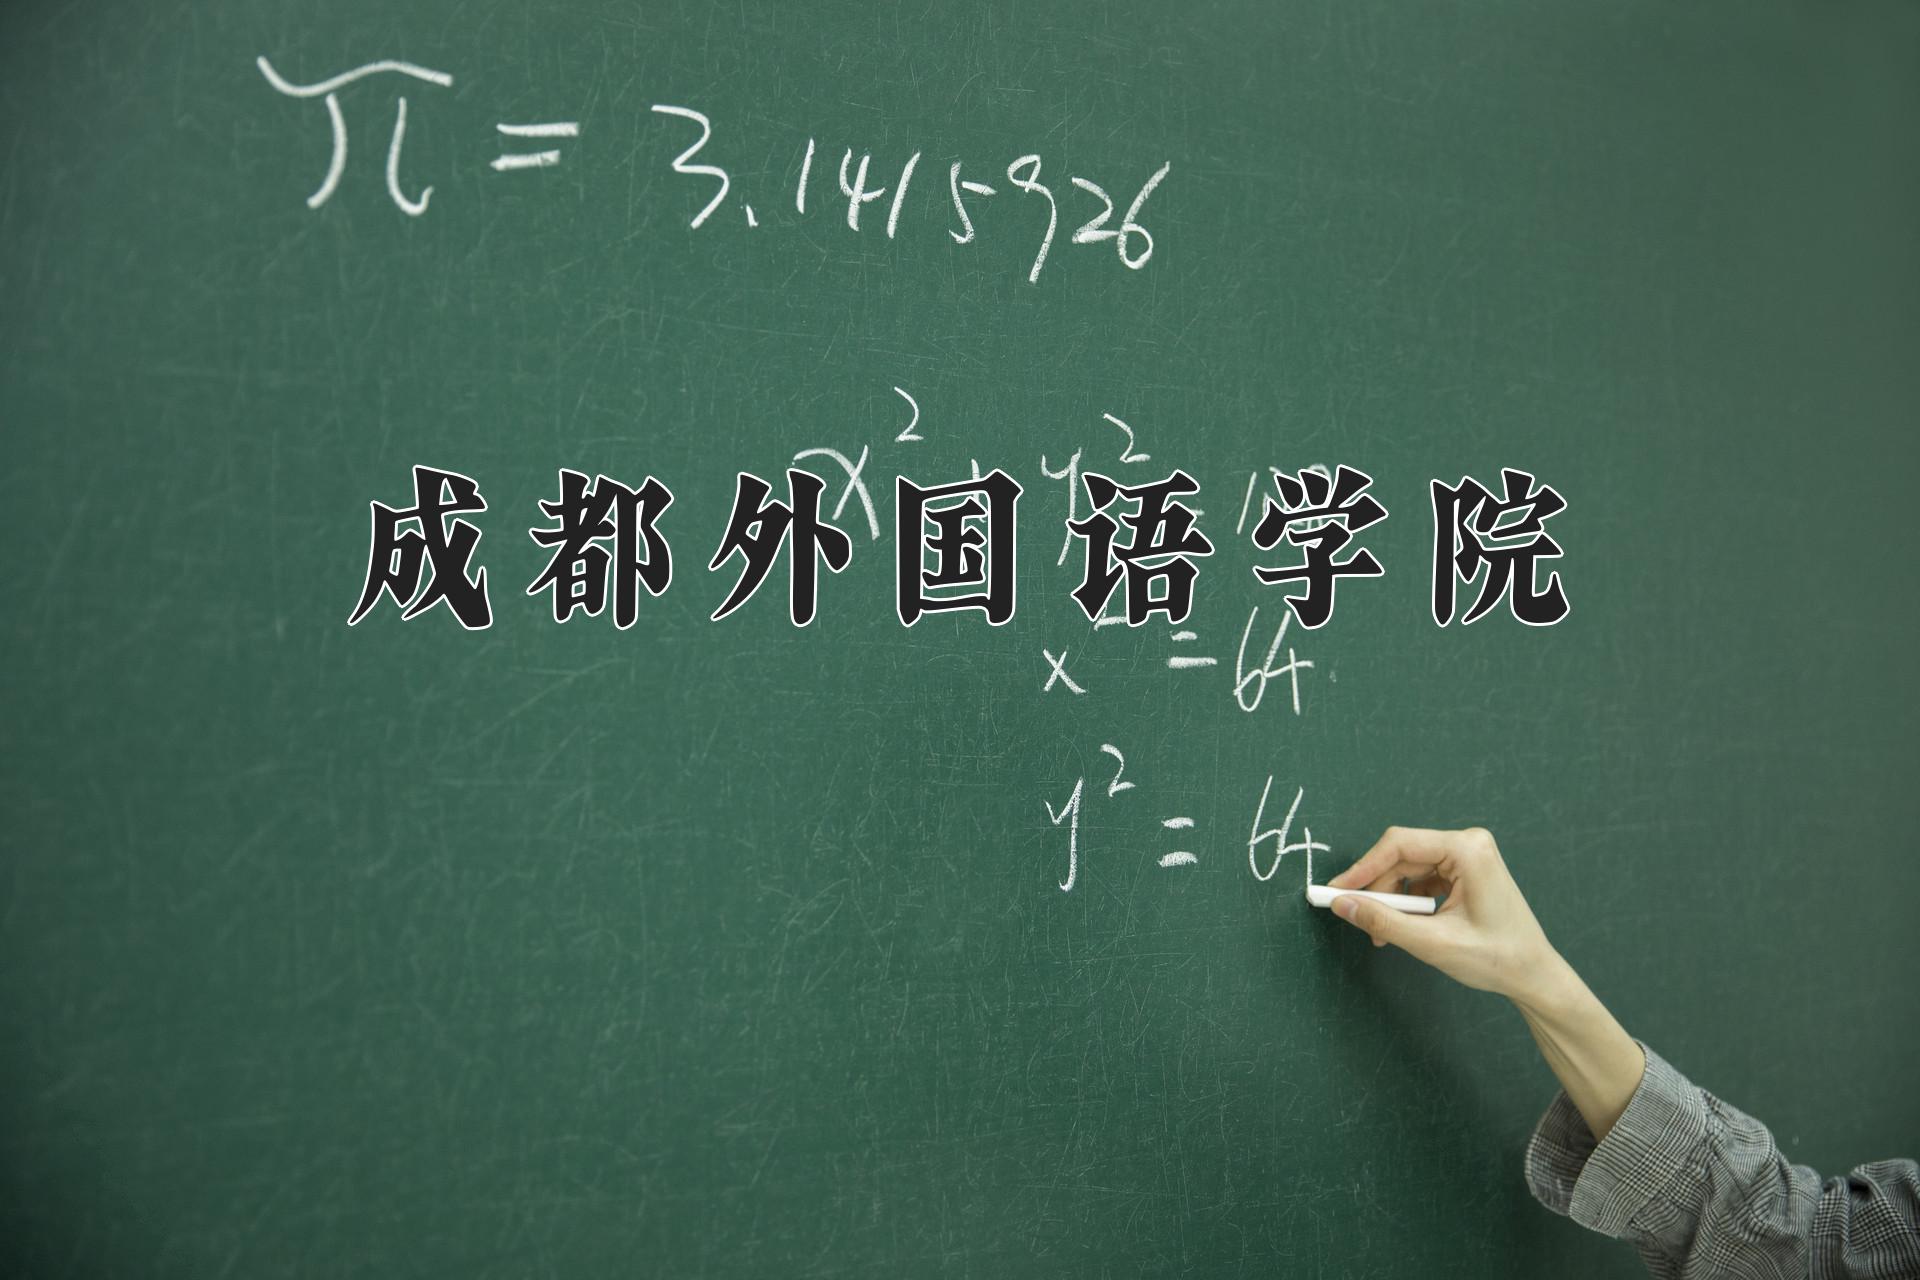 π = 3.1415926
x² + y² = 128
成都外国语学院
x² = 64
y² = 64